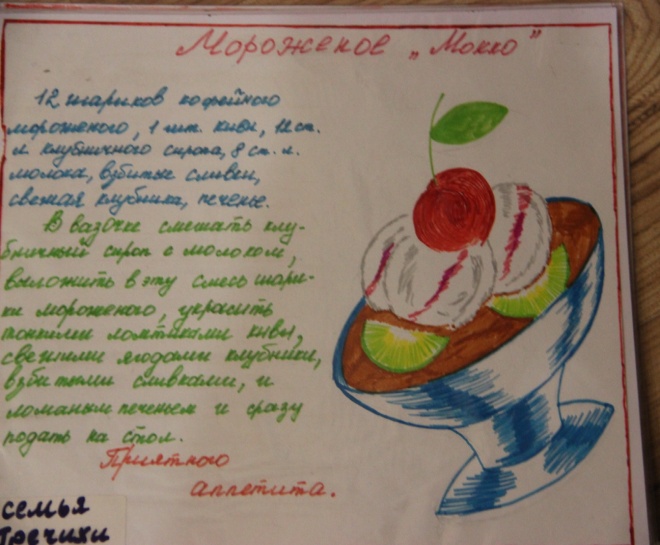 Мороженое „Мокко”
12 шариков кофейного
мороженого, 1 шт. киви, 12 ст.
л. клубничного сиропа, 8 ст. л.
молока, взбитые сливки,
свежая клубника, печенье.
В вазочке смешать клу-
бничный сироп с молоком,
выложить в эту смесь шари-
ки мороженого, украсить
тонкими ломтиками киви,
свежими ягодами клубники,
взбитыми сливками, и
ломаным печеньем и сразу
подать на стол.
Приятного
аппетита.
семья
Гречихи